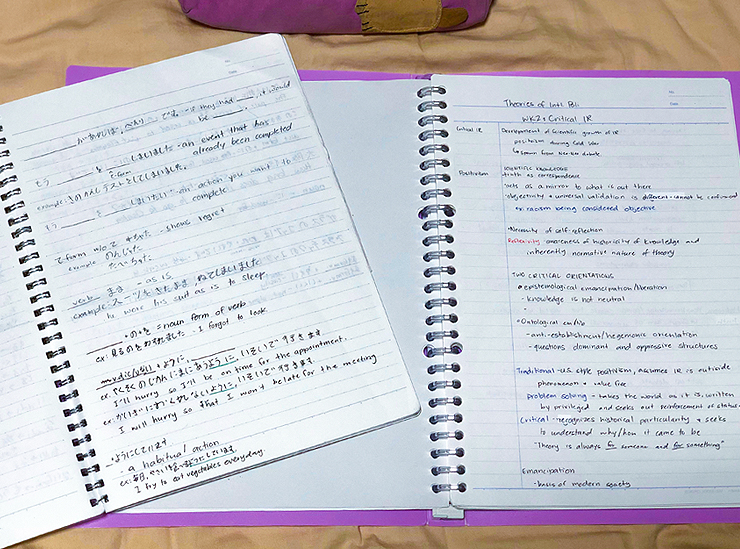 ___ があれば, ___ です。 -if they had ___, it would be ___
もう ___ を ___ しまいました -an event that has already been completed
example: きのう テストをしてしまいました。
もう ___ を ___ しまいたい -an action you want to complete
て form w/o て + ちゃった - shows regret
example のんじゃった
たべちゃった
verb まま - as is
example: スーツをきたまま, ねてしまいました
he wore his suit as is to sleep.
+ のを = noun form of verb
ex: 見るのをわすれました. I forgot to look
ように,
ex. やくそくのじかんにまにあうように, いそいで
I'll hurry so I'll be on time for the appointment.
I will hurry so that I won't be late for the meeting
ようにしています
- a habitual action
ex: 毎日, やさいを ようにしています.
I try to eat vegetables everyday.
Theories of Intl Poli
WK2: Critical IR
Critical IR
Development of scientific growth of IR
positivism during Cold War
Positivism
scientific knowledge
truth as correspondence
·acts as a mirror to what is out there
·objectivity + universal validation is different - cannot be confirmed
ex: racism being considered objective
·Necessity of self-reflection
Reflexivity -awareness of historicity of knowledge and
inherently normative nature of theory
TWO CRITICAL ORIENTATIONS
epistemological emancipation/liberation
- knowledge is not neutral
-
Ontological
- anti-establishment/hegemonic orientation
- questions dominant and oppressive structures
Traditional -U.S. style positivism, assumes IR is outside
phenomenon + value free
problem solving - takes the world as it is, written
by privileged and seeks out reinforcement of status
Critical - recognizes historical particularity + seeks
to understand why/how it came to be
"Theory is always for someone and for something"
Emancipation
- basis of modern society